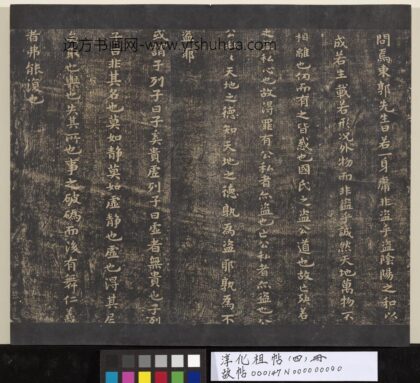 問焉東郭先生曰若一身庸非盜乎盜陰陽之和以
成若生載若形況外物而非盜乎誠然天地萬物不
相離也仞而有之皆惑也國氏之盜公道也故亡殃若
之私心也故得罪有公私者亦盜也亡公私者亦盜也公
公私私天地之德知天地之德孰為盜耶孰為不
盜耶
或謂子列子曰子奚貴虛列子曰虛者無貴也子列
子曰非其名也莫如靜莫如虛靜也虛也得其居
矣取也與也失其所也事之破䃣而後有舞仁義
者弗能復也
远方书画网-www.yfshuhua.com
淳化祖帖(四)冊
故帖000147N000000090